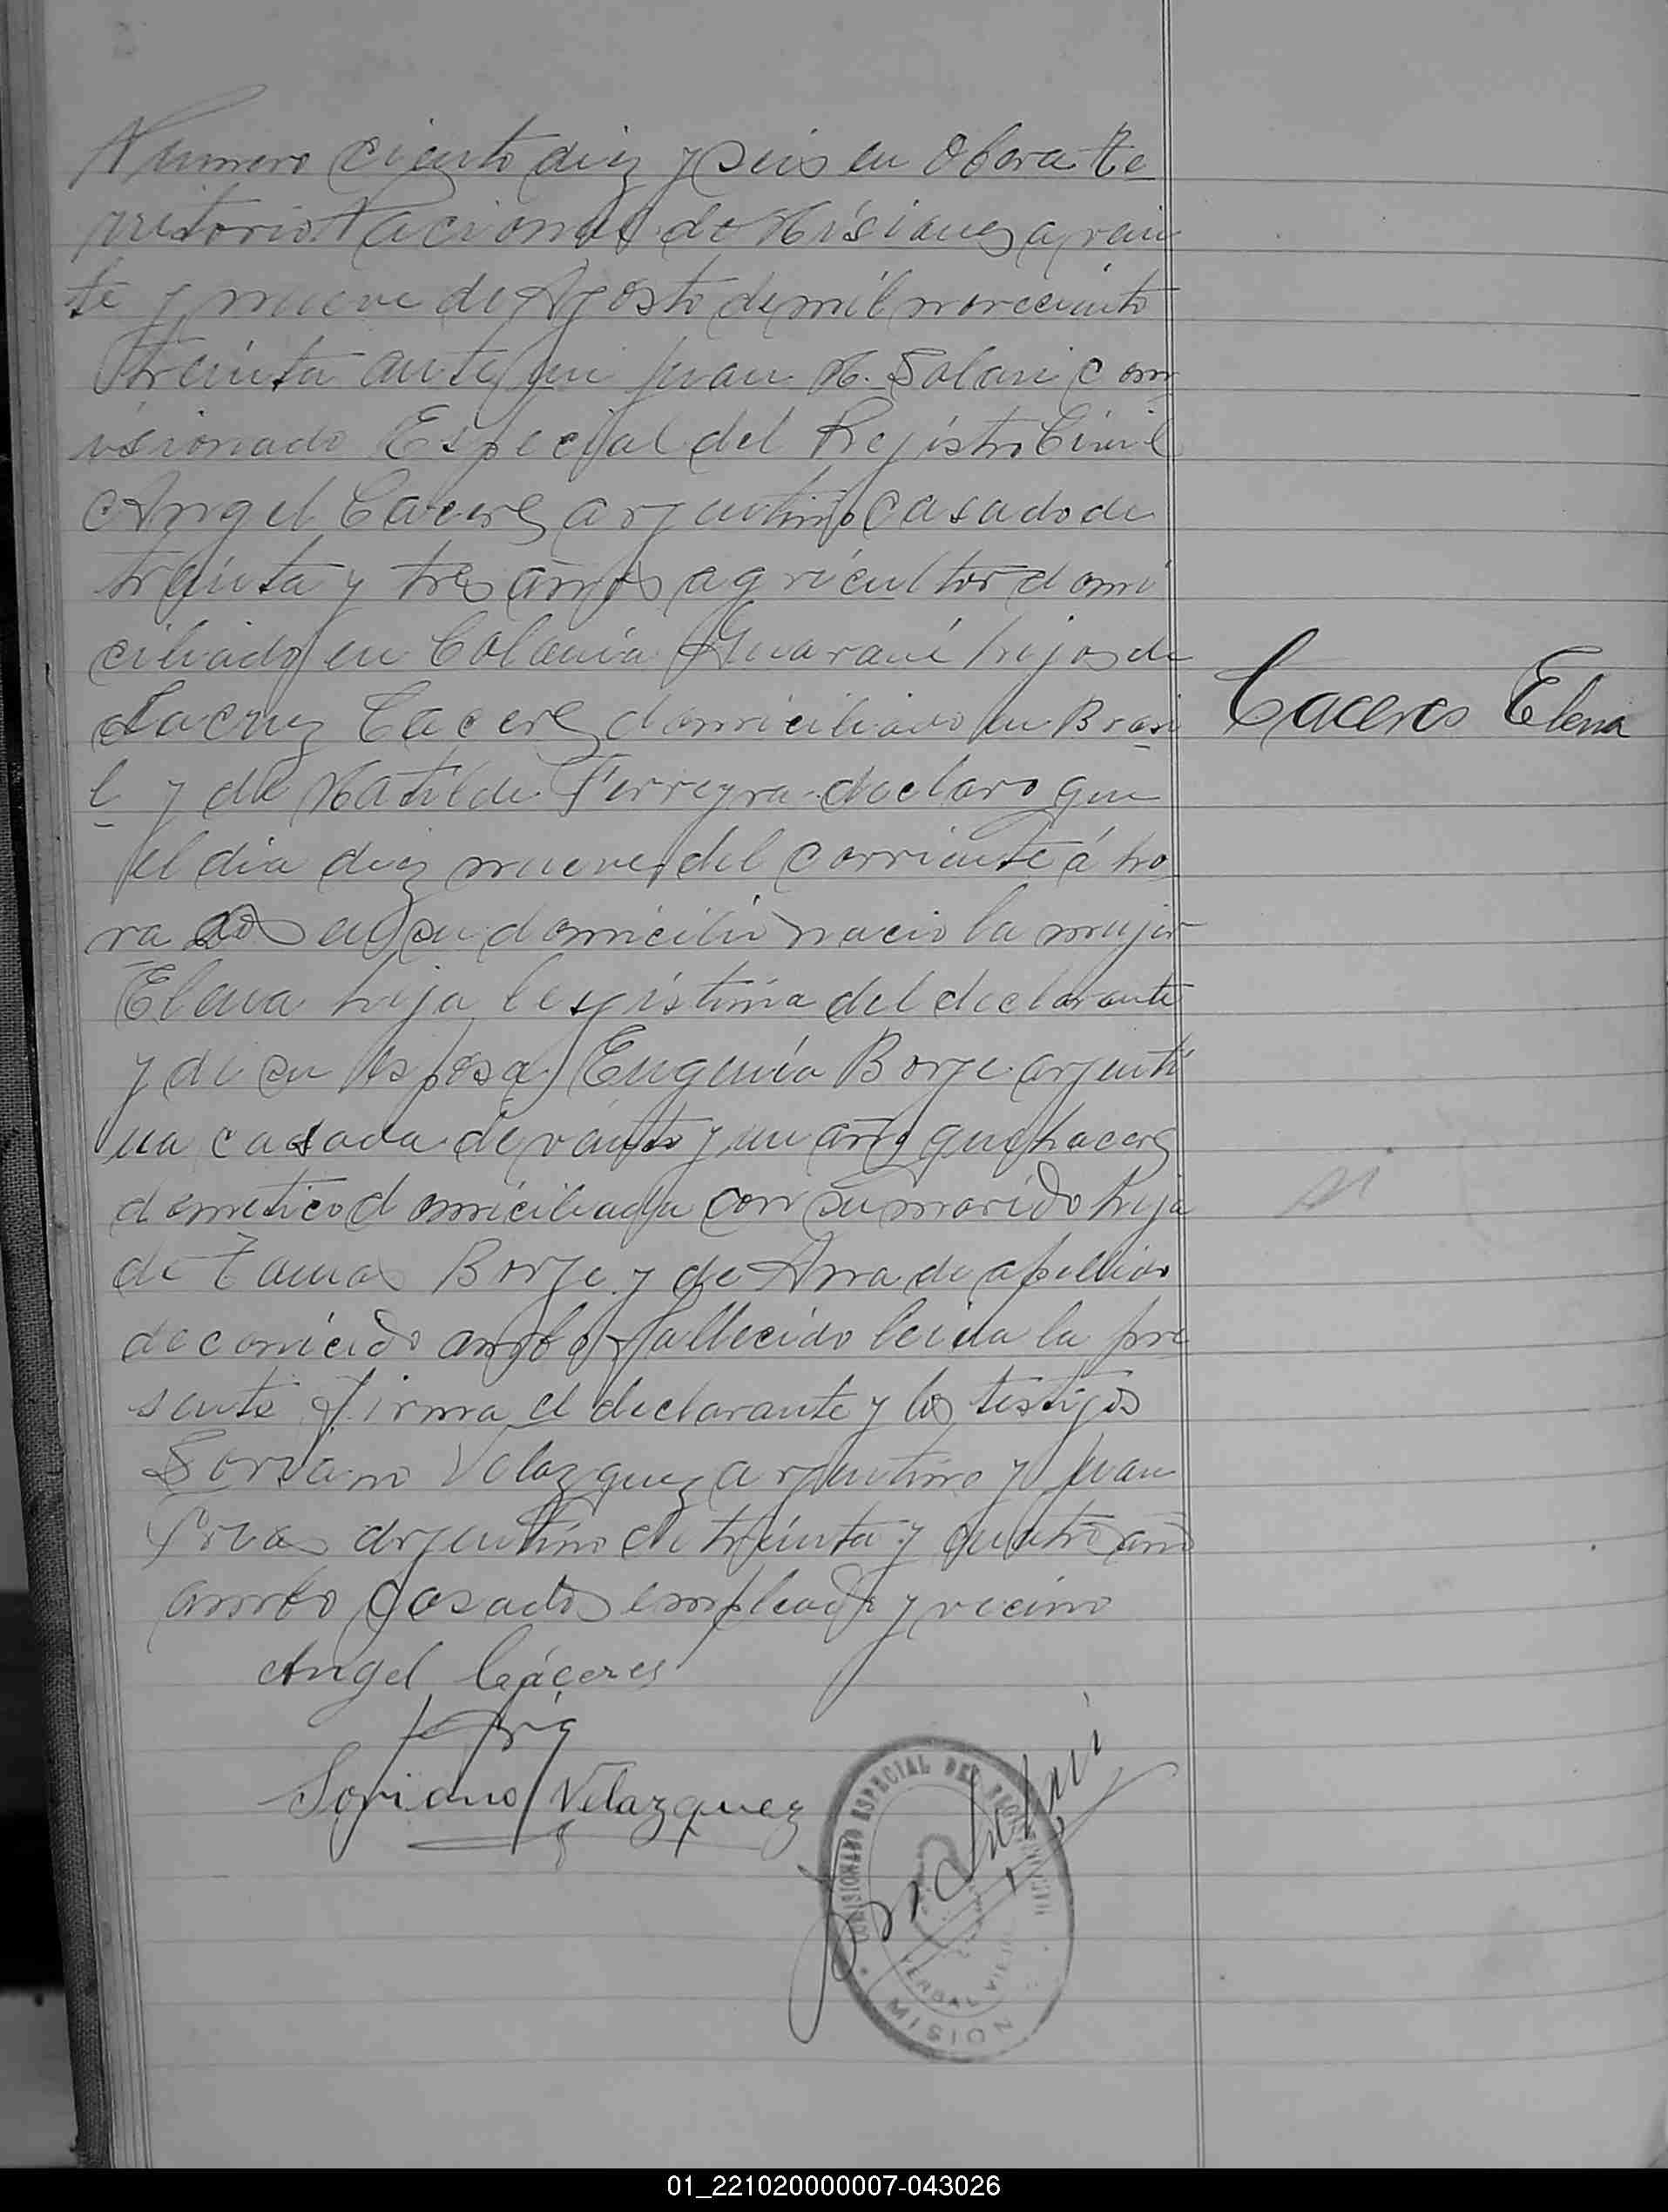 Numero ciento diez y seis en Obera Te
rritorio Nacional de Misiones a vein
te y nueve de Agosto de mil noveciento
treinta ante mi Juan M. Solari com
isionado Especial del Rejistro Civil
Angel Caceres argentino casado de
treinta y tres años agricultor domi
ciliado en Colonia Guarani hijos de
Lacruz Caceres domiciliado en Brasi
l y de Matilde Ferreyra declaro que
el dia diez nueve del corriente á ho
ra dos en su domicilio nacio la mujer
Elena hija legistima del declarante
y de su esposa Eugenia Borje arjenti
na casada de veinte y un año quehaceres
dometico domiciliada con su marido hija
de Tomas Borje y de Ana de apellido
deconicido ambo fallecido leida la pre
sente firma el declarante y los testigos
Soriano Velazquez arjentino y Juan
arjentino de treinta y cuatro año
ambo casados empleado y vecino
Caceres Elena
si
Angel Cáceres
Soriano Velazquez
COMISIONADO ESPECIAL DEL REGISTRO CIVIL
YERBAL VIEJO
MISIONES
01_221020000007-043026